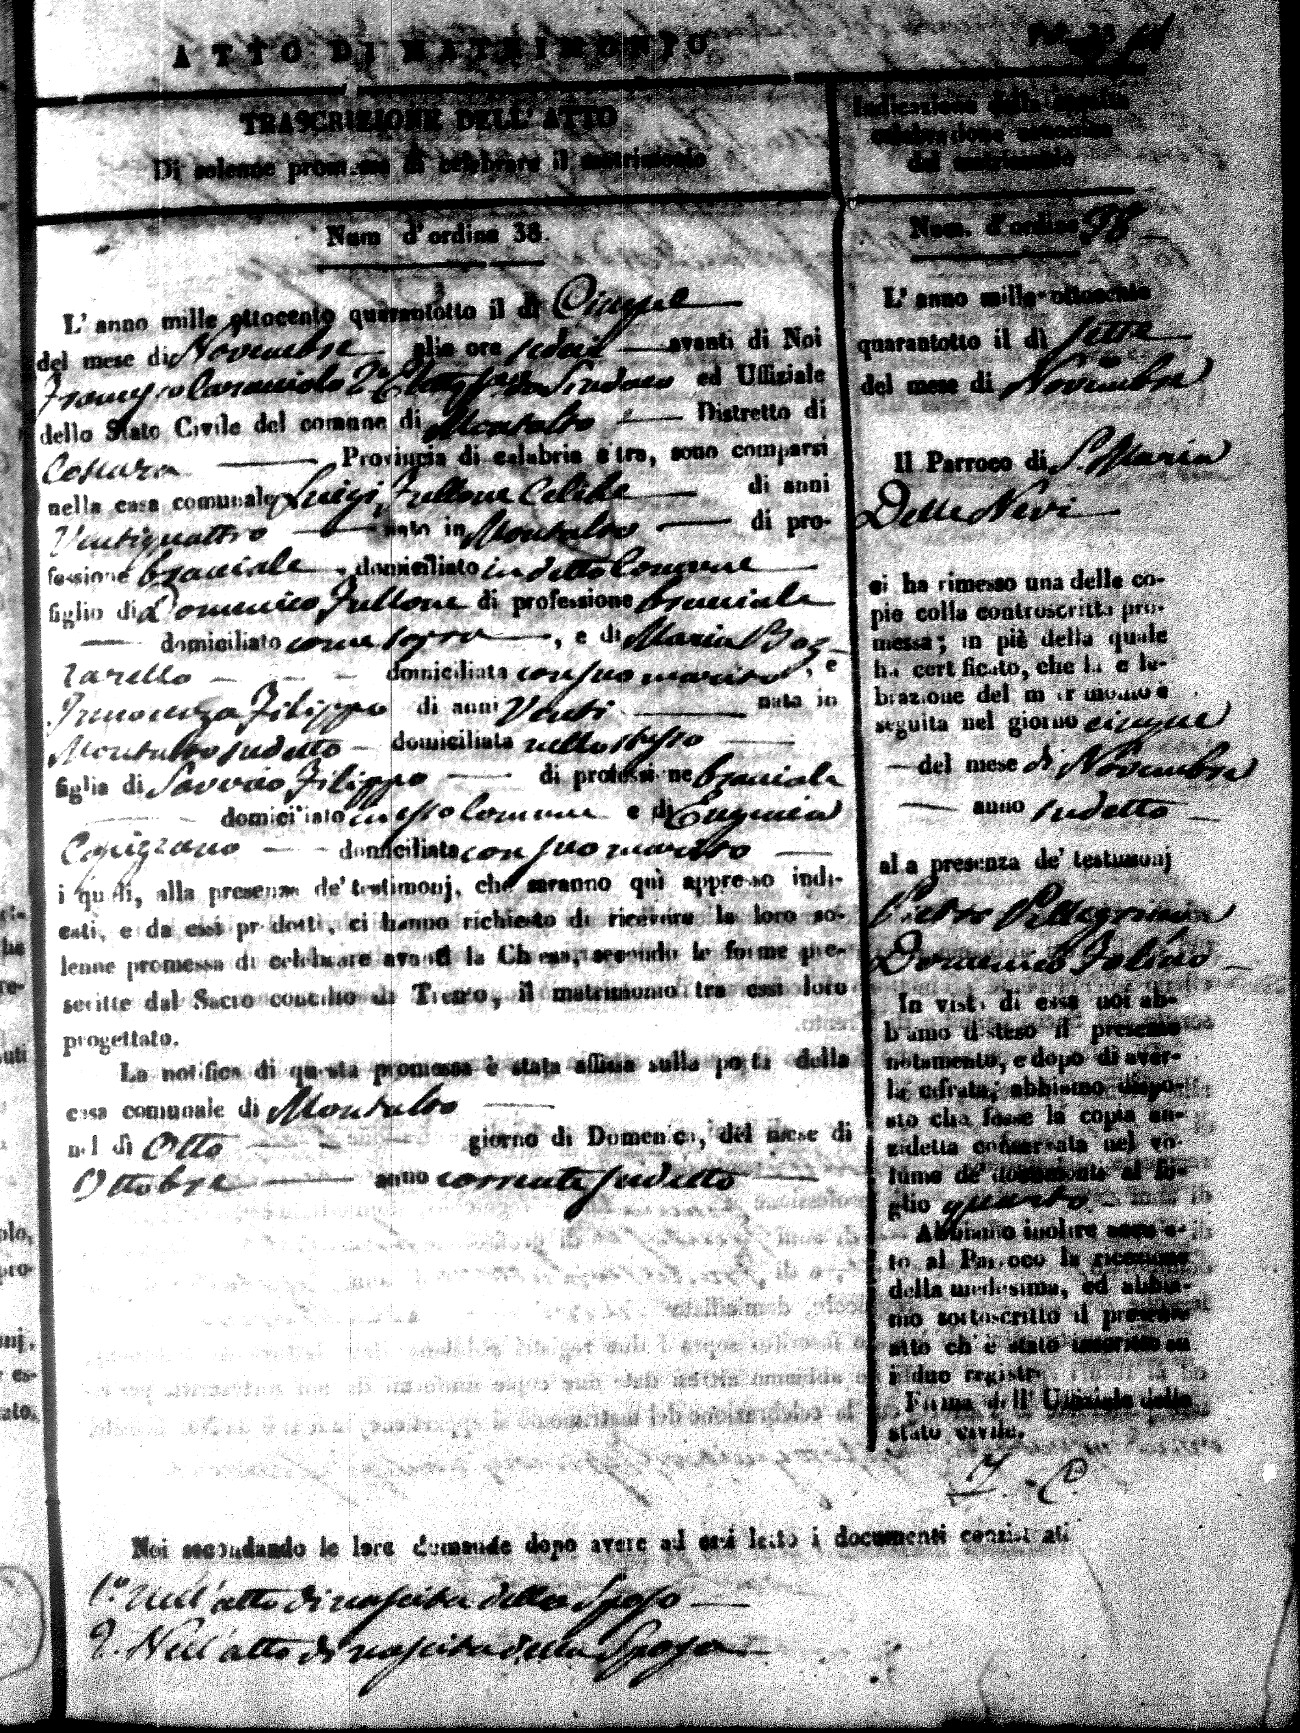 ATTO DI MATRIMONIO
TRASCRIZIONE DELL' ATTO
Di solenne promessa di celebrare il matrimonio
Num d'ordine 38.
L' anno mille ottocento quarantotto il dì Cinque
del mese di Novembre alle ore sedici avanti di Noi
Francesco Caracciolo 2° Eletto Sindaco ed Uffiziale
dello Stato Civile del comune di Montalto Distretto di
Cosenza Provincia di calabria citra, sono comparsi
nella casa comunale Luigi Fullone Celibe di anni
Ventiquattro nato in Montalto di pro-
fessione bracciale, domiciliato in detto Comune
figlio di Domenico Fullone di professione bracciale
domiciliato come sopra, e di Maria Boz-
zarello domiciliata con suo marito, e
Innocenza Filippo di anni Venti nata in
Montalto sudetto domiciliata nello stesso
figlia di Saverio Filippo di professione bracciale
domiciliato in esso Comune e di Eugenia
domiciliata con suo marito
i quali, alla presenza de' testimonj, che saranno quì appresso indi-
cati, e da essi prodotti, ci hanno richiesto di ricevere la loro so-
lenne promessa di celebrare avanti la Chiesa, secondo le forme pre-
scritte dal Sacro concilio di Trento, il matrimonio tra essi loro
progettato.
La notifica di questa promessa è stata affissa sulla porta della
casa comunale di Montalto
nel dì Otto giorno di Domenica, del mese di
Ottobre anno corrente sudetto
Noi secondando le loro domande dopo avere ad essi letto i documenti consistenti
1.° Nell'atto di nascita dello Sposo
2. Nell'atto di nascita della Sposa
Indicazione della seguita
celebrazione canonica
del matrimonio
Num. d'ordine 38
L' anno mille ottocento
quarantotto il dì sette
del mese di Novembre
Il Parroco di S. Maria
Delle Nevi
ci ha rimesso una delle co-
pie colla controscritta pro-
messa; in piè della quale
ha certificato, che la cele-
brazione del matrimonio è
seguita nel giorno cinque
del mese di Novembre
anno sudetto
alla presenza de' testimonj
Pietro Pellegrini
Domenico Folino
In vista di essa noi ab-
biamo disteso il presente
notamento, e dopo di aver-
la cifrata, abbiamo dispo-
sto che fosse la copia an-
zidetta conservata nel vo-
lume de' documenti al fo-
glio quarto
Abbiamo inoltre accusa-
to al Parroco la ricezione
della medesima, ed abbia-
mo sottoscritto il presente
atto ch' è stato inscritto su
i due registri
Firma dell' Uffiziale dello
stato civile.